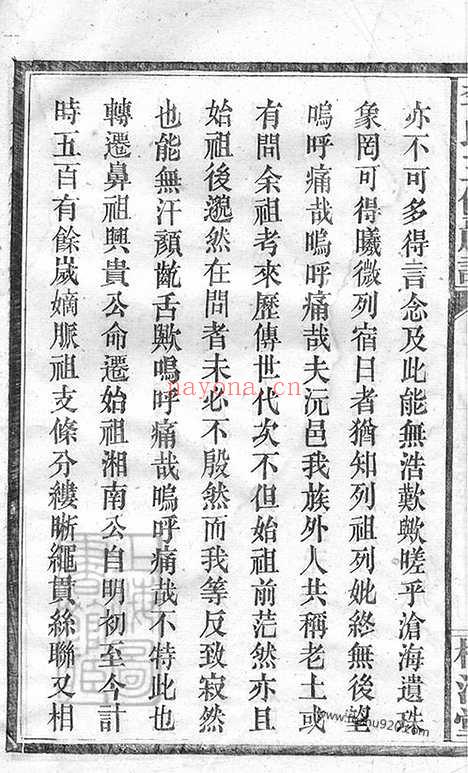 亦不可多得言念及此能無浩歎歟嗟乎滄海遺珠
象罔可得曦微列宿日者猶知列祖列妣終無後望
嗚呼痛哉嗚呼痛哉夫沅邑我族外人共稱老土或
有問余祖考來歷傳世代次不但始祖前茫然亦且
始祖後邈然在問者未必不殷然而我等反致寂然
也能無汗顏齕舌歟嗚呼痛哉嗚呼痛哉不特此也
轉遷鼻祖興貴公命遷始祖湘南公自明初至今計
時五百有餘歲嫡脈祖支條分縷晰繩貫絲聯又相
nayona.cn
www.jiapu920.com